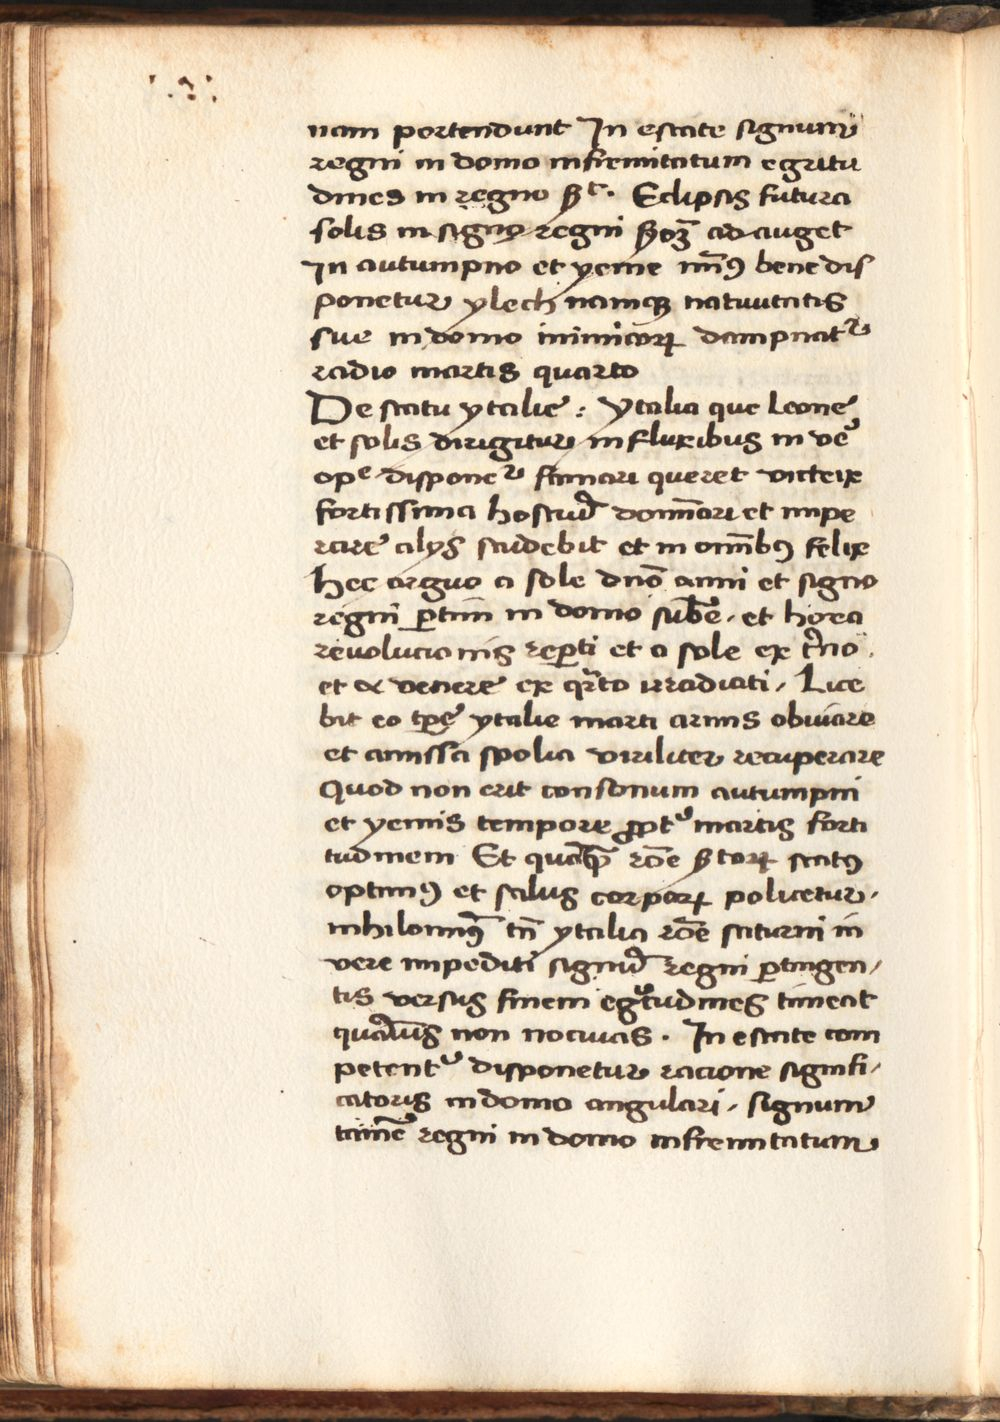 nam portendunt In estate signum
regni in domo infirmitatum egritu
dines in regno Eclipsis futura
solis in signo regni ad auget
In autumpno et yeme min9 bene dis
ponetur ylech namq natiuitatis
sue in domo inimicorꝝ dampnatr
radio martis quarto
De statu ytalie : Ytalia que Leone
et solis dirigitur influxibus in vē
ope disponer famari queret victrix
fortissima dominari et impe
rare alys studebit et in omībꝯ felix
hec arguo a sole dnō anni et signo
regni ꝑtim in domo et hora
reuolucionis reꝑti et a sole ex
et venere ex qrto irradiati / Lice
bit eo tꝑe ytalie marti armis obuiare
et amissa spolia viriliter recuperare
Quod non erit consonum autumpni
et yemis tempore martis forti
tudinem Et quāqꝫ rōe statꝯ
optimꝯ et salus corporꝝ policetur .
nihilominꝯ tn̄ ytalia rōe saturni in
vere impediti regni ꝑtingen /
tis versus finem egritudines timeat
quāuis non nociuas . In estate com
petentr disponetur racione signifi /
catoris in domo angulari / signum
tamē regni in domo infirmitatum